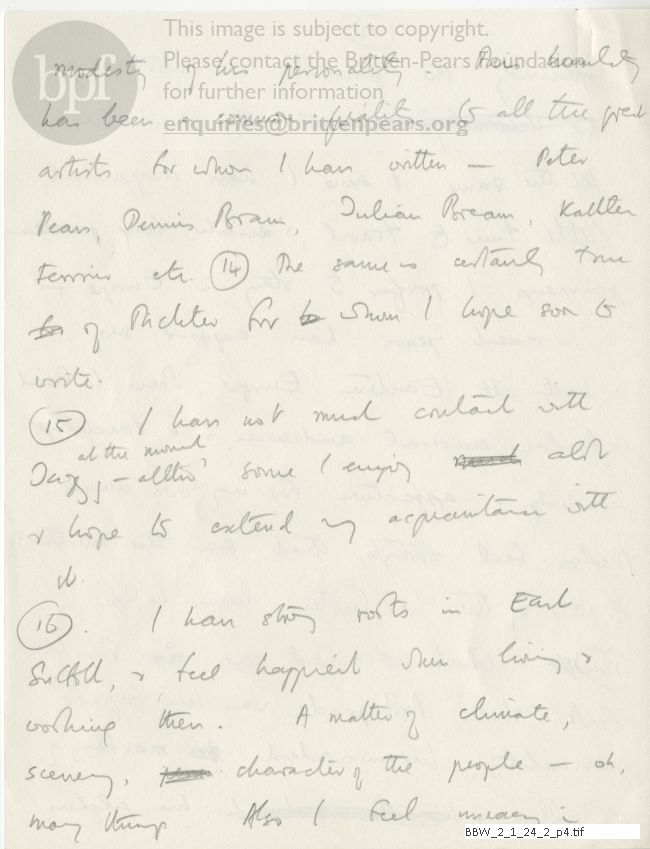 bpf
This image is subject to copyright.
Please contact the Britten-Pears Foundation
for further information
enquiries@brittenpears.org
modesty of his personality. humility
has been a common quality to all the great
artists for whom I have written — Peter
Pears, Dennis Brain, Julian Bream, Kathleen
Ferrier etc. (14) The same is certainly true
of Richter for whom I hope soon to
write.
(15) I have not much contact with
at the moment
Jazz – altho' some I enjoy alot
& hope to extend my acquaintance with
it.
(16). I have strong roots in East
Suffolk, & feel happiest when living &
working there. A matter of climate,
scenery, character of the people — oh,
many things Also I feel
BBW_2_1_24_2_p4.tif